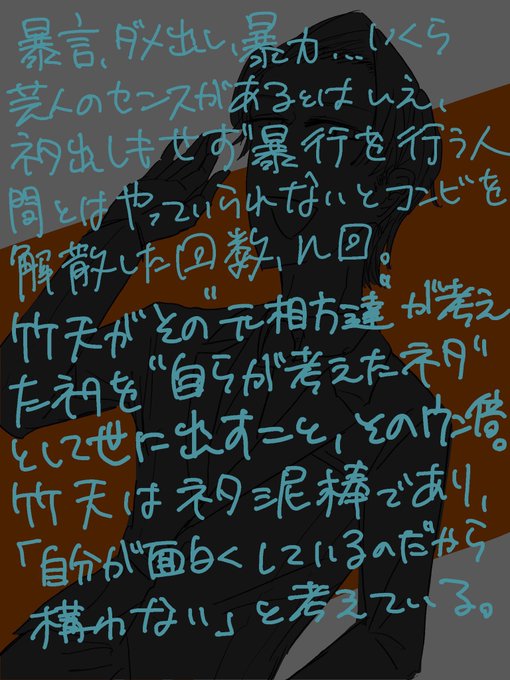 暴言、ダメ出し、暴力...いくら
芸人のセンスがあるとはいえ、
ネタ出しもせず暴行を行う人
間とはやっていられないとコンビを
解散した回数、n回。
竹天がその"元相方達"が考え
たネタを"自らが考えたネタ"
として世に出すこと、そのウン倍。
竹天はネタ泥棒であり、
「自分が面白くしているのだから
構わない」と考えている。